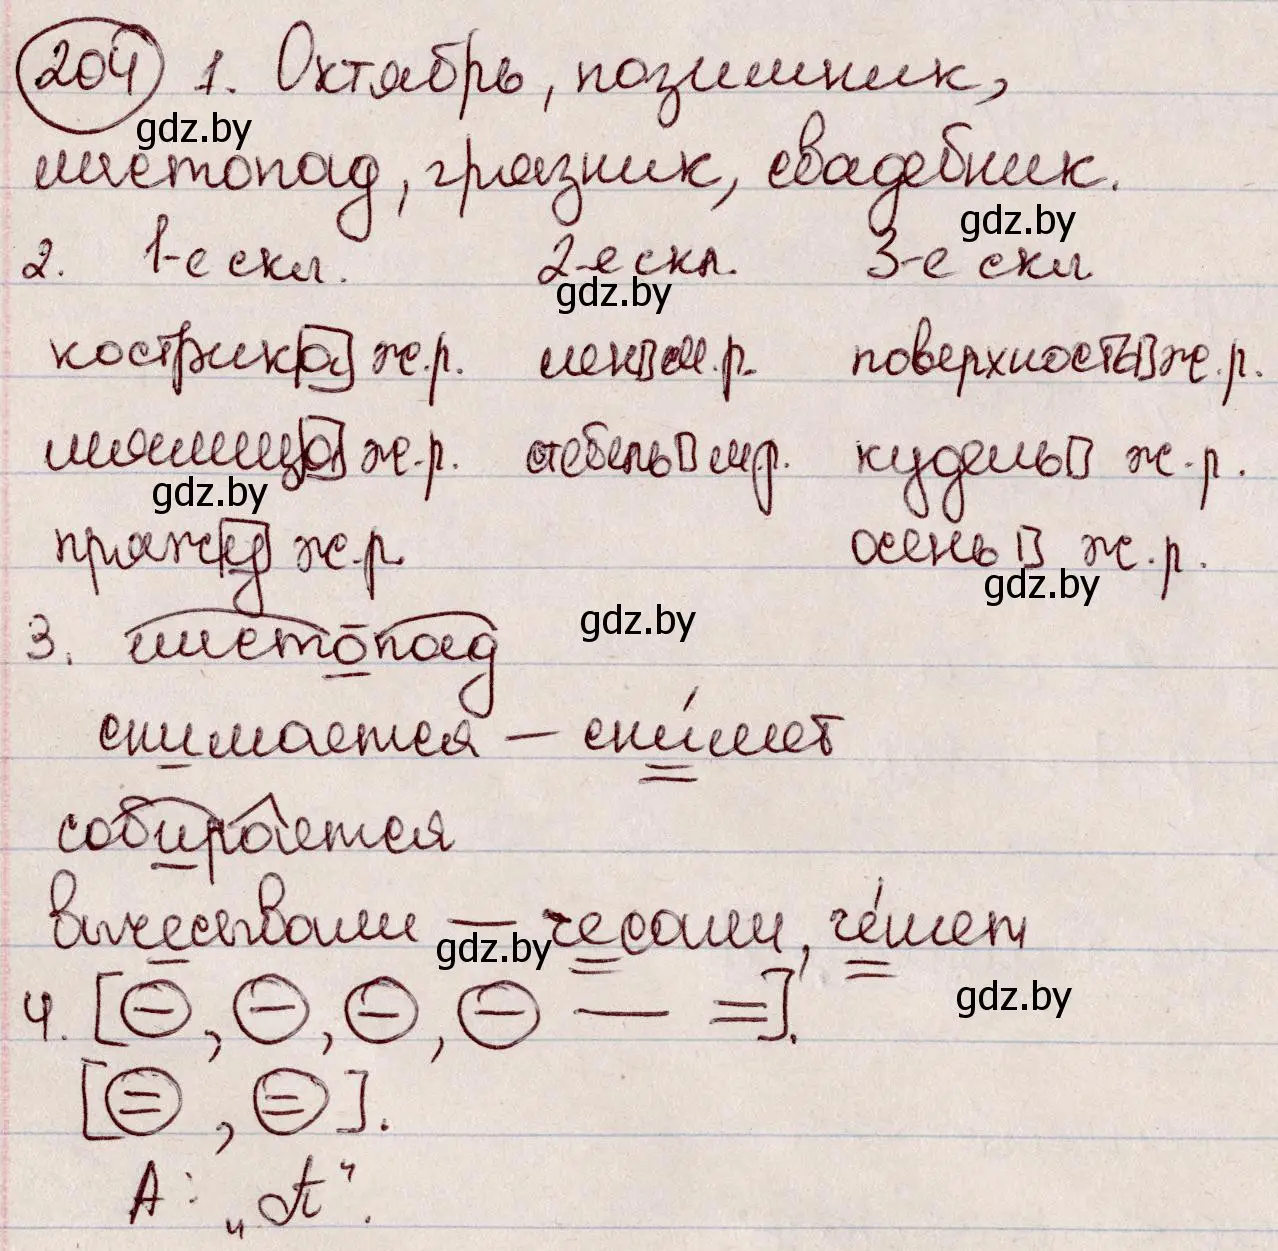 204 1. Октябрь, позимник,
gdz.by
листопад, грязник, свадебник.
gdz.by
2. 1-е скл. 2-е скл. 3-е скл
gdz.by
кострика ж.р. лен м.р. поверхность ж.р.
мялица ж.р. стебель м.р. кудель ж.р.
gdz.by
пряжа ж.р. осень ж.р.
gdz.by
3. листопад gdz.by
снимается – сни́мет
собирается
вычёсывали – чесали, че́шет
gdz.by
4. [–, –, –, – — =]. gdz.by
[=, =].
А: „А“.